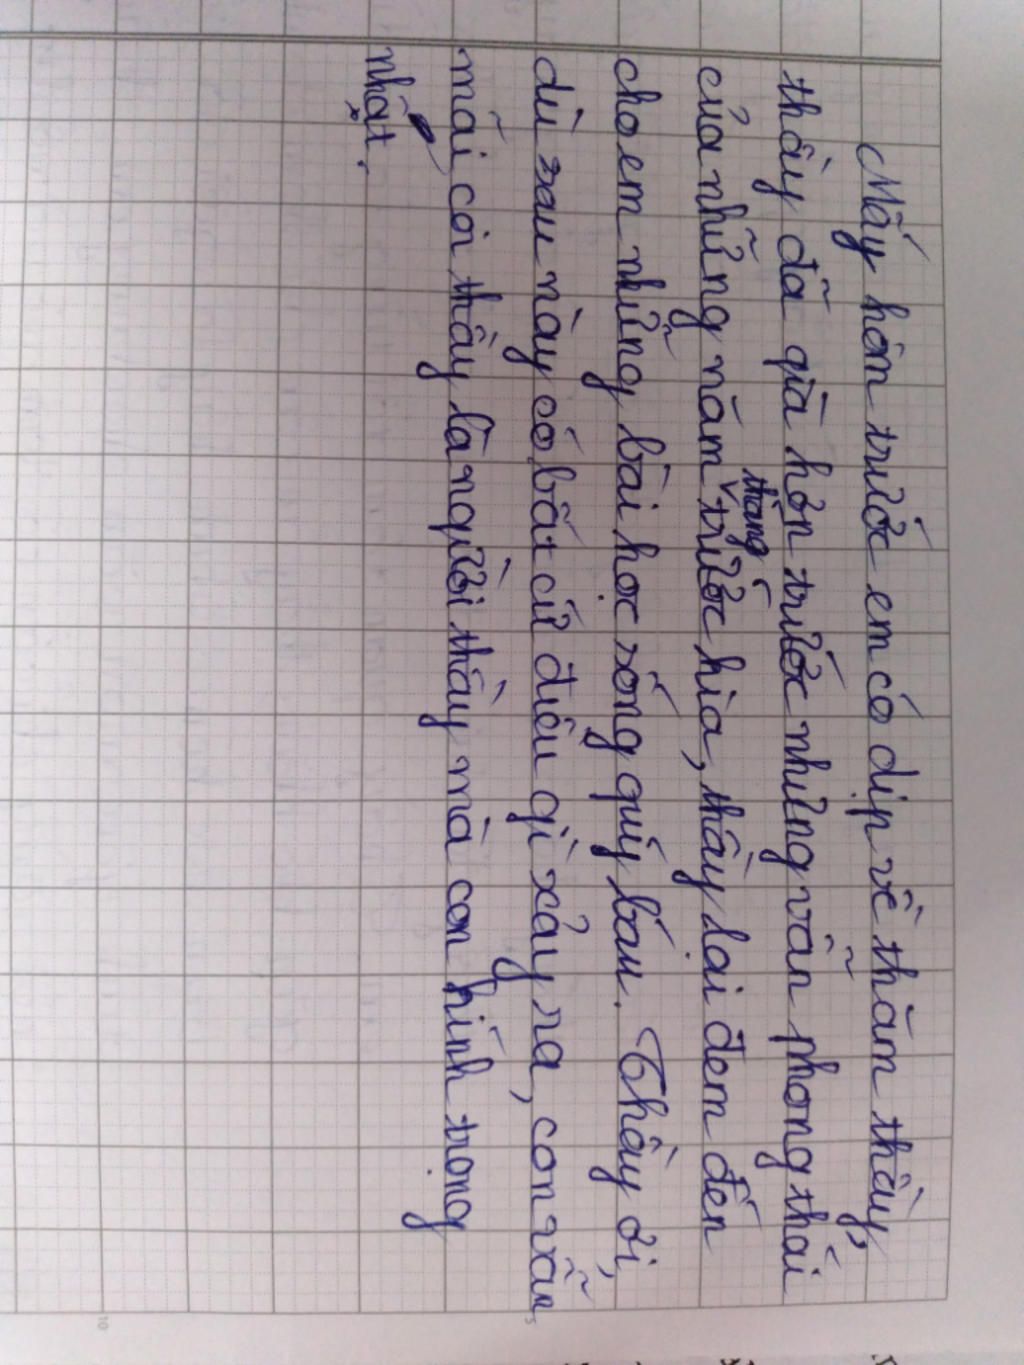 Mấy hôm trước em có dịp về thăm thầy,
thầy đã già hơn trước nhưng vẫn phong thái
của những năm tháng trước kia, thầy lại đem đến
cho em những bài học sống quý báu. Thầy ơi,
dù sau này có bất cứ điều gì xảy ra, con vẫn
mãi coi thầy là người thầy mà con kính trọng
nhất.